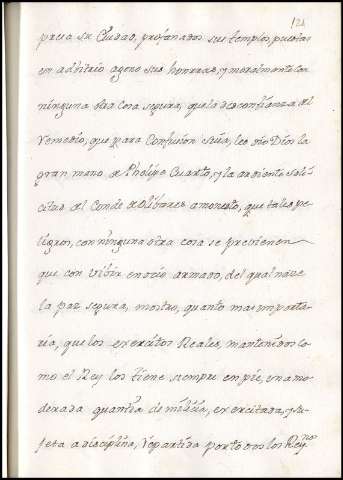 121
presa su Ciudad, profanados sus templos, puestas
en advitrio ageno sus honrras, y moralmente con
ninguna otra cosa segura, que la desconfianza del
remedio, que para Confusion suia, les dio Dios la
gran mano de Phelipe Cuarto, y la ardiente soli
citud del Conde de Olibares amonesto, que tales pe
ligros, con ninguna otra cosa se previenen
que con vivir en ocio armado, del qual nace
la paz segura, mostro, quanto mas importa
ria, que los exercitos Reales, mantenidos co
mo el Rey los tiene siempre en pie, una mo
derada quantia de milicia, exercitada, y su
jeta a disciplina, repartida por todos los Reynos